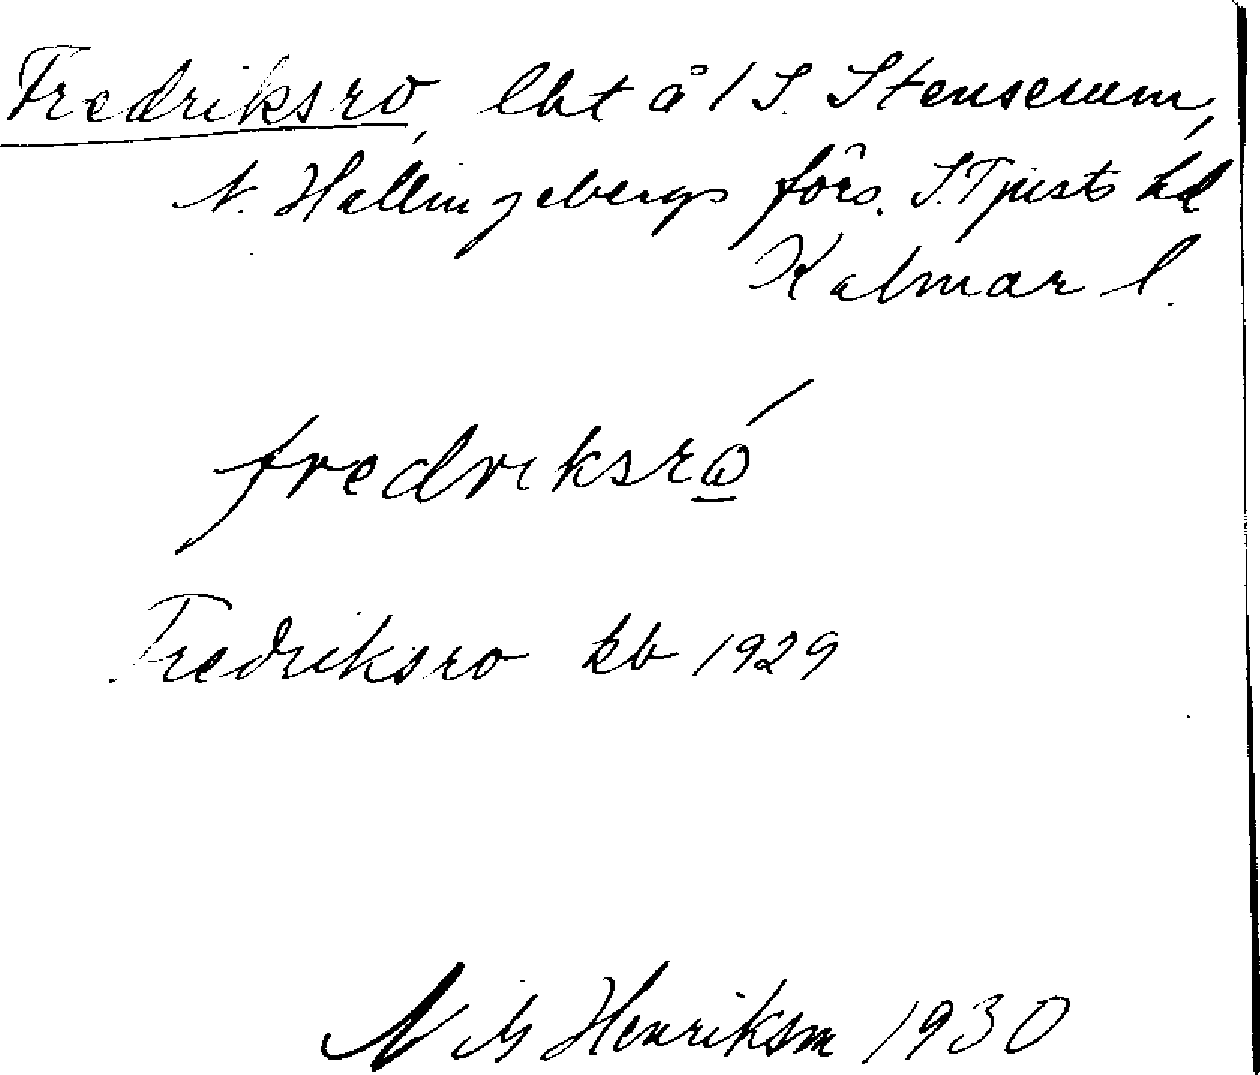 Fredriksro, lht å 1 S. Stenserum,
N. Hallingebergs förs. S. Tjusts hd
Kalmar l.
fredriksró
Fredriksro kb 1929
Nils Henriksson 1930